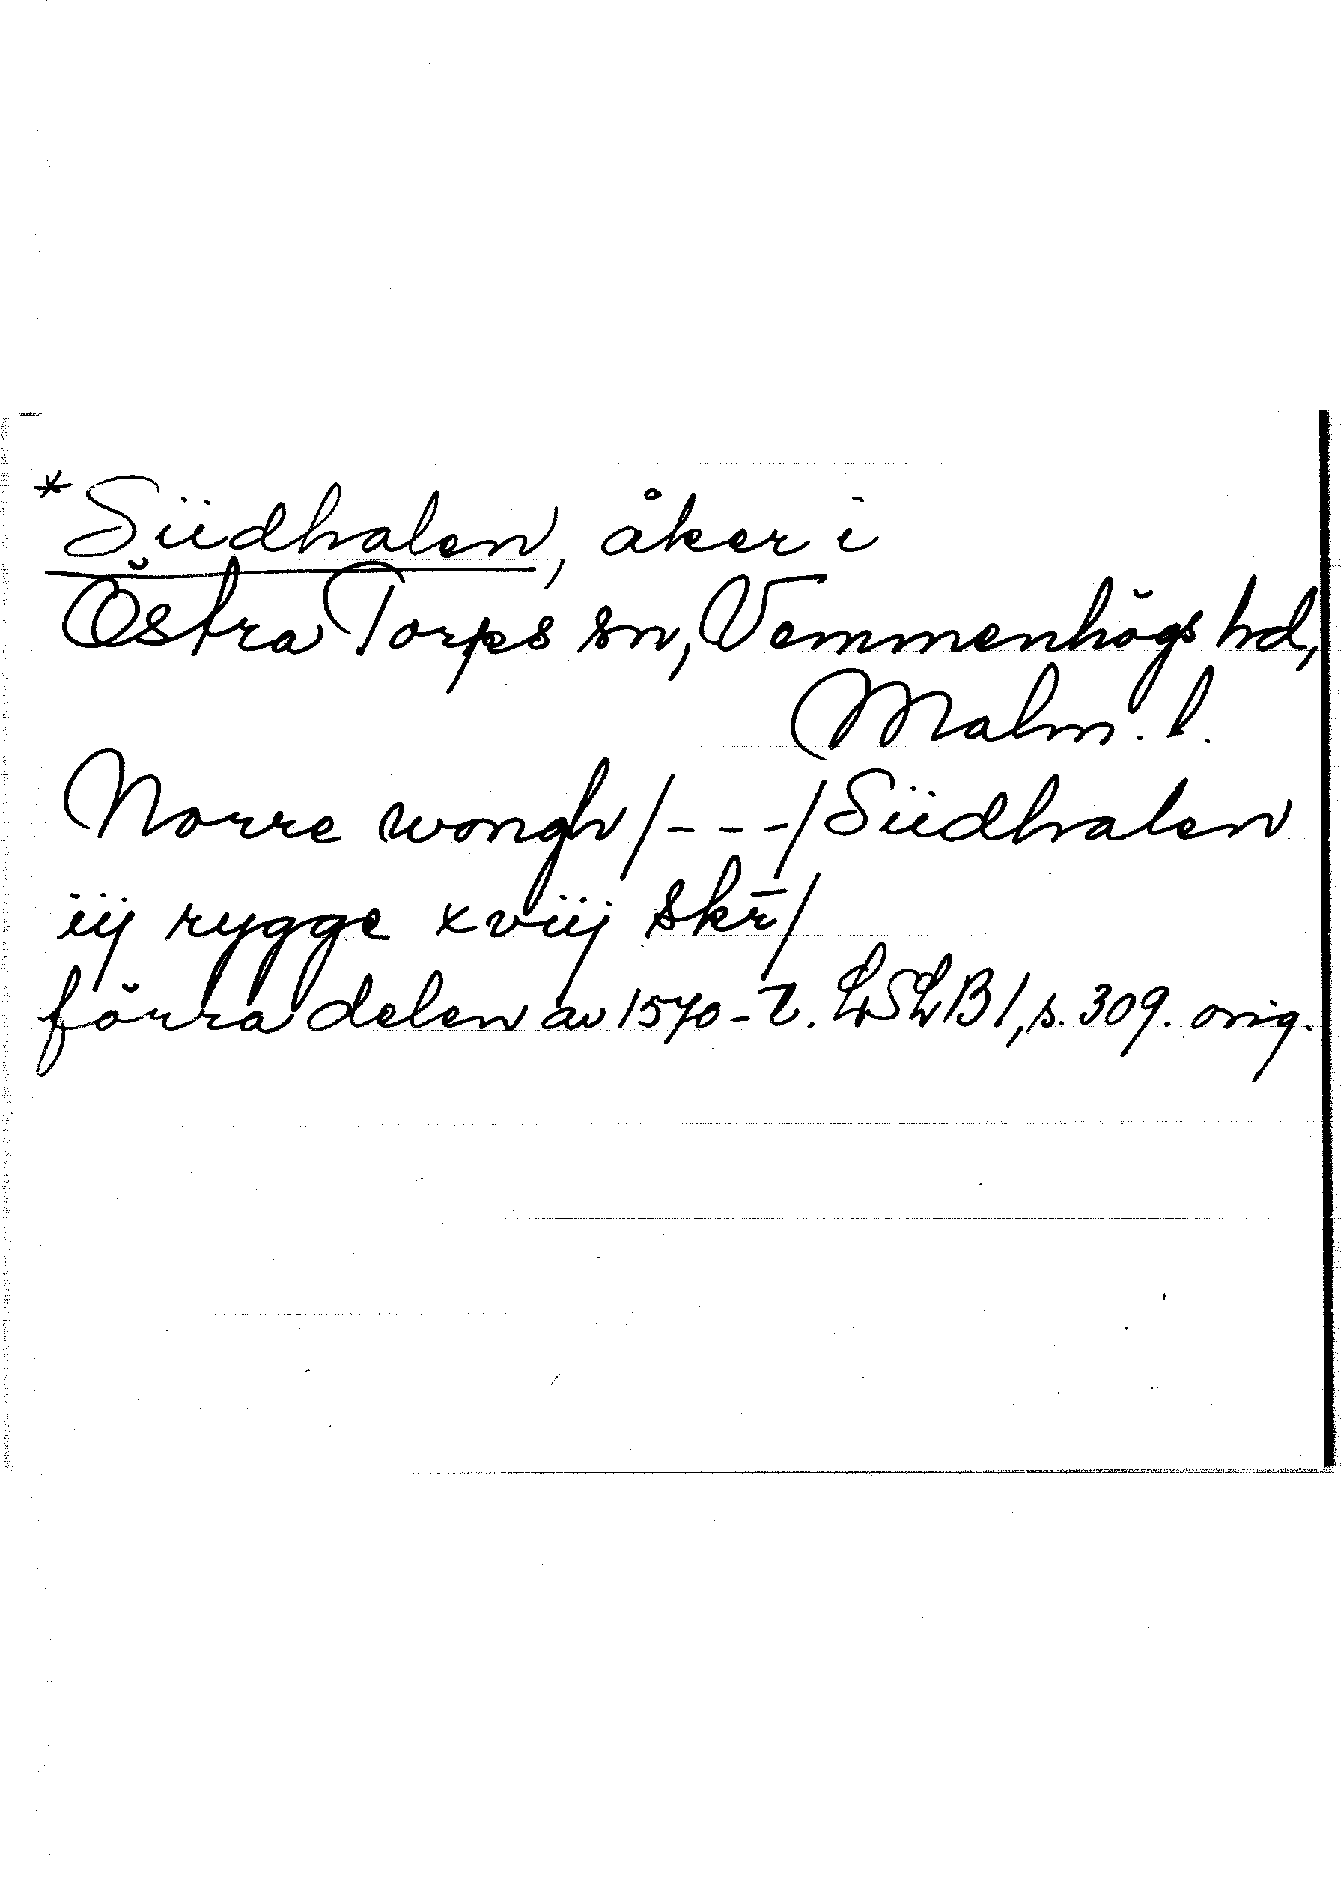 *Südhalen, åker i
Östra Torps sn, Vemmenhögs hd,
Malm. l.
Norre wongh /---/ Südhalen
iij rygge xviij skr̄/
förra delen av 1570-t. LSLB 1, s. 309. orig.